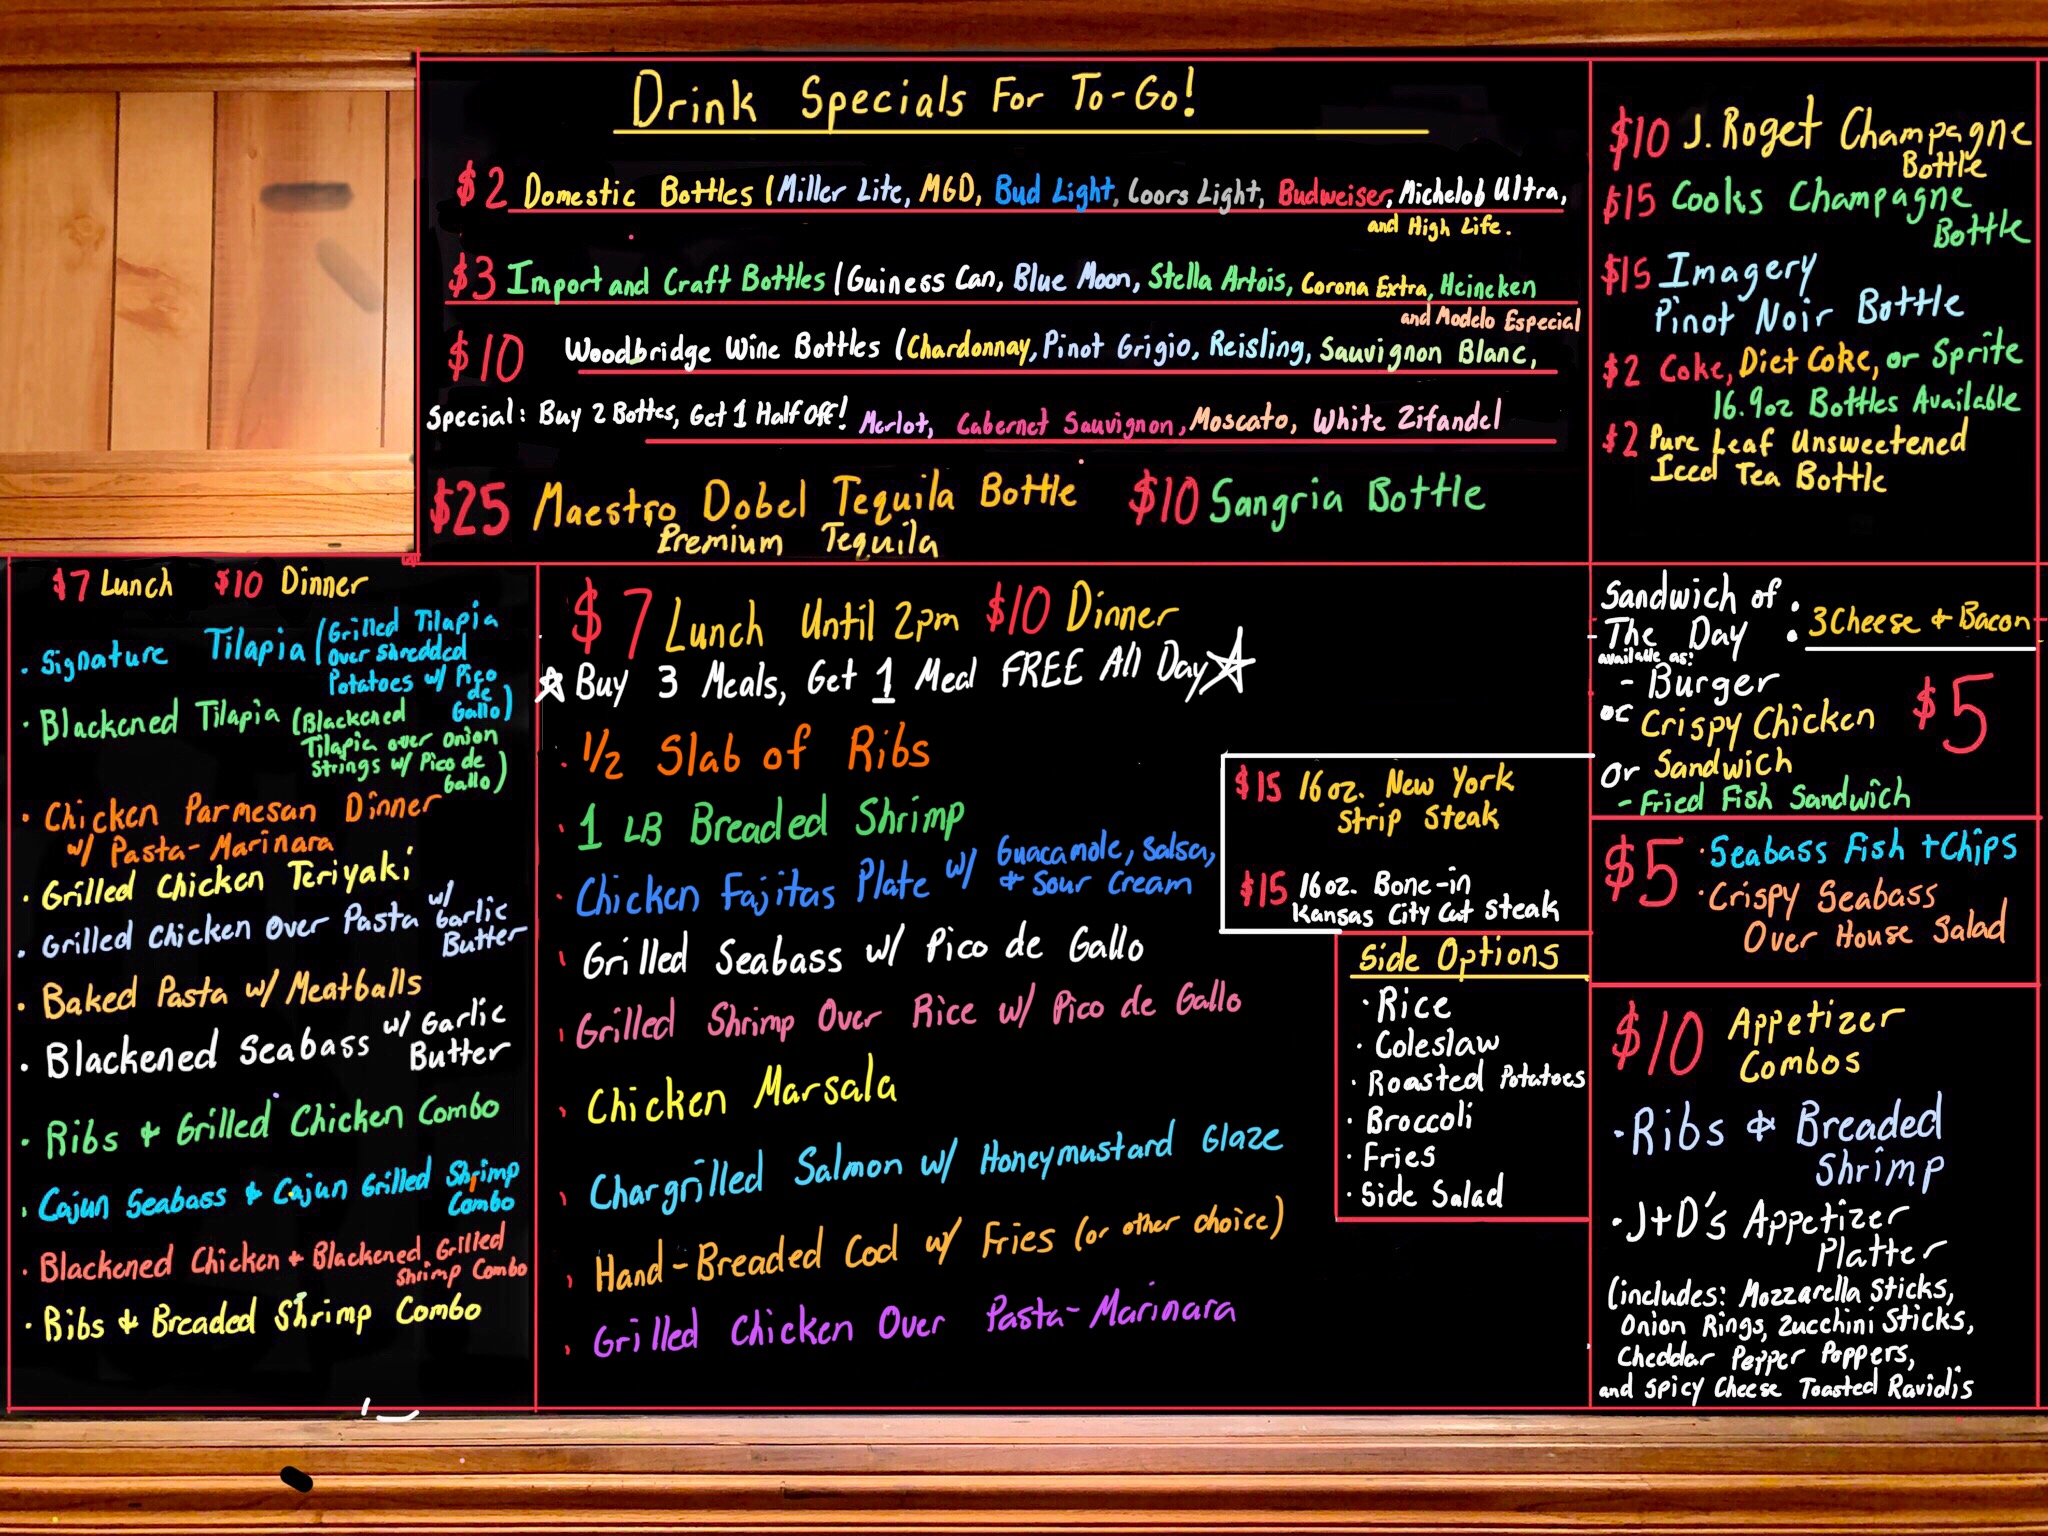 Drink Specials For To-Go!
$2 Domestic Bottles (Miller Lite, MGD, Bud Light, Coors Light, Budweiser, Michelob Ultra,
and High Life.
$3 Import and Craft Bottles (Guiness Can, Blue Moon, Stella Artois, Corona Extra, Heineken
and Modelo Especial
$10 Woodbridge Wine Bottles (Chardonnay, Pinot Grigio, Reisling, Sauvignon Blanc,
Special: Buy 2 Bottes, Get 1 Half Off! Merlot, Cabernet Sauvignon, Moscato, White Zifandel
$25 Maestro Dobel Tequila Bottle $10 Sangria Bottle
Premium Tequila
$10 J. Roget Champagne
Bottle
$15 Cooks Champagne
Bottle
$15 Imagery
Pinot Noir Bottle
$2 Coke, Diet Coke, or Sprite
16.9oz Bottles Available
$2 Pure Leaf Unsweetened
Iced Tea Bottle
$7 Lunch $10 Dinner
· Signature Tilapia (Grilled Tilapia
over Shredded
Potatoes w/ Pico
de
Gallo)
· Blackened Tilapia (Blackened
Tilapia over onion
Strings w/ Pico de
Gallo)
· Chicken Parmesan Dinner
w/ Pasta-Marinara
· Grilled Chicken Teriyaki
· Grilled Chicken Over Pasta w/
Garlic
Butter
· Baked Pasta w/ Meatballs
· Blackened Seabass w/ Garlic
Butter
· Ribs & Grilled Chicken Combo
· Cajun Seabass & Cajun Grilled Shrimp
Combo
· Blackened Chicken & Blackened Grilled
Shrimp Combo
· Ribs & Breaded Shrimp Combo
$7 Lunch Until 2pm $10 Dinner
☆ Buy 3 Meals, Get 1 Meal FREE All Day ☆
· 1/2 Slab of Ribs
· 1 LB Breaded Shrimp
· Chicken Fajitas Plate w/ Guacamole, Salsa,
& Sour Cream
· Grilled Seabass w/ Pico de Gallo
· Grilled Shrimp Over Rice w/ Pico de Gallo
· Chicken Marsala
· Chargrilled Salmon w/ Honeymustard Glaze
· Hand-Breaded Cod w/ Fries (or other choice)
· Grilled Chicken Over Pasta-Marinara
$15 16oz. New York
Strip Steak
$15 16oz. Bone-in
Kansas City Cut Steak
Side Options
· Rice
· Coleslaw
· Roasted Potatoes
· Broccoli
· Fries
· Side Salad
Sandwich of
The Day : 3 Cheese & Bacon
available as:
- Burger
or Crispy Chicken $5
or Sandwich
- Fried Fish Sandwich
$5 · Seabass Fish + Chips
· Crispy Seabass
Over House Salad
$10 Appetizer
Combos
· Ribs & Breaded
Shrimp
· J+D's Appetizer
Platter
(includes: Mozzarella Sticks,
Onion Rings, Zucchini Sticks,
Cheddar Pepper Poppers,
and Spicy Cheese Toasted Raviolis